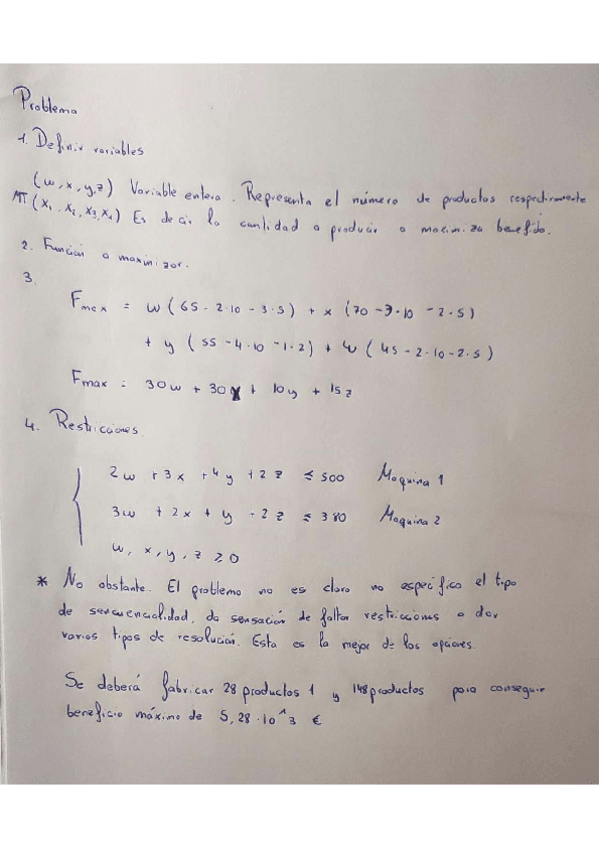 Problema
1. Definir variables
(w, x, y, z) Variable entera. Representa el número de productos respectivamente
(x₁, x₂, x₃, x₄) Es decir la cantidad a producir o maximiza benefido.
2. Función a maximizar.
3.
Fmax = w (65 - 2·10 - 3·5) + x (70 - 3·10 - 2·5)
+ y (55 - 4·10 - 1·2) + (45 - 2·10 - 2·5)
Fmax = 30w + 30x + 10y + 15z
4. Restricciones.
2w + 3x + 4y + 2z ≤ 500 Maquina 1
3w + 2x + y - 2z ≤ 380 Maquina 2
w, x, y, z ≥ 0
* No obstante. El problema no es claro no especifica el tipo
de sencuencialidad, da sensación de faltar restricciones o dar
varios tipos de resolución. Esta es la mejor de las opciones.
Se deberá fabricar 28 productos 1 y 148 productos para conseguir
beneficio máximo de 5,28·10^3 €